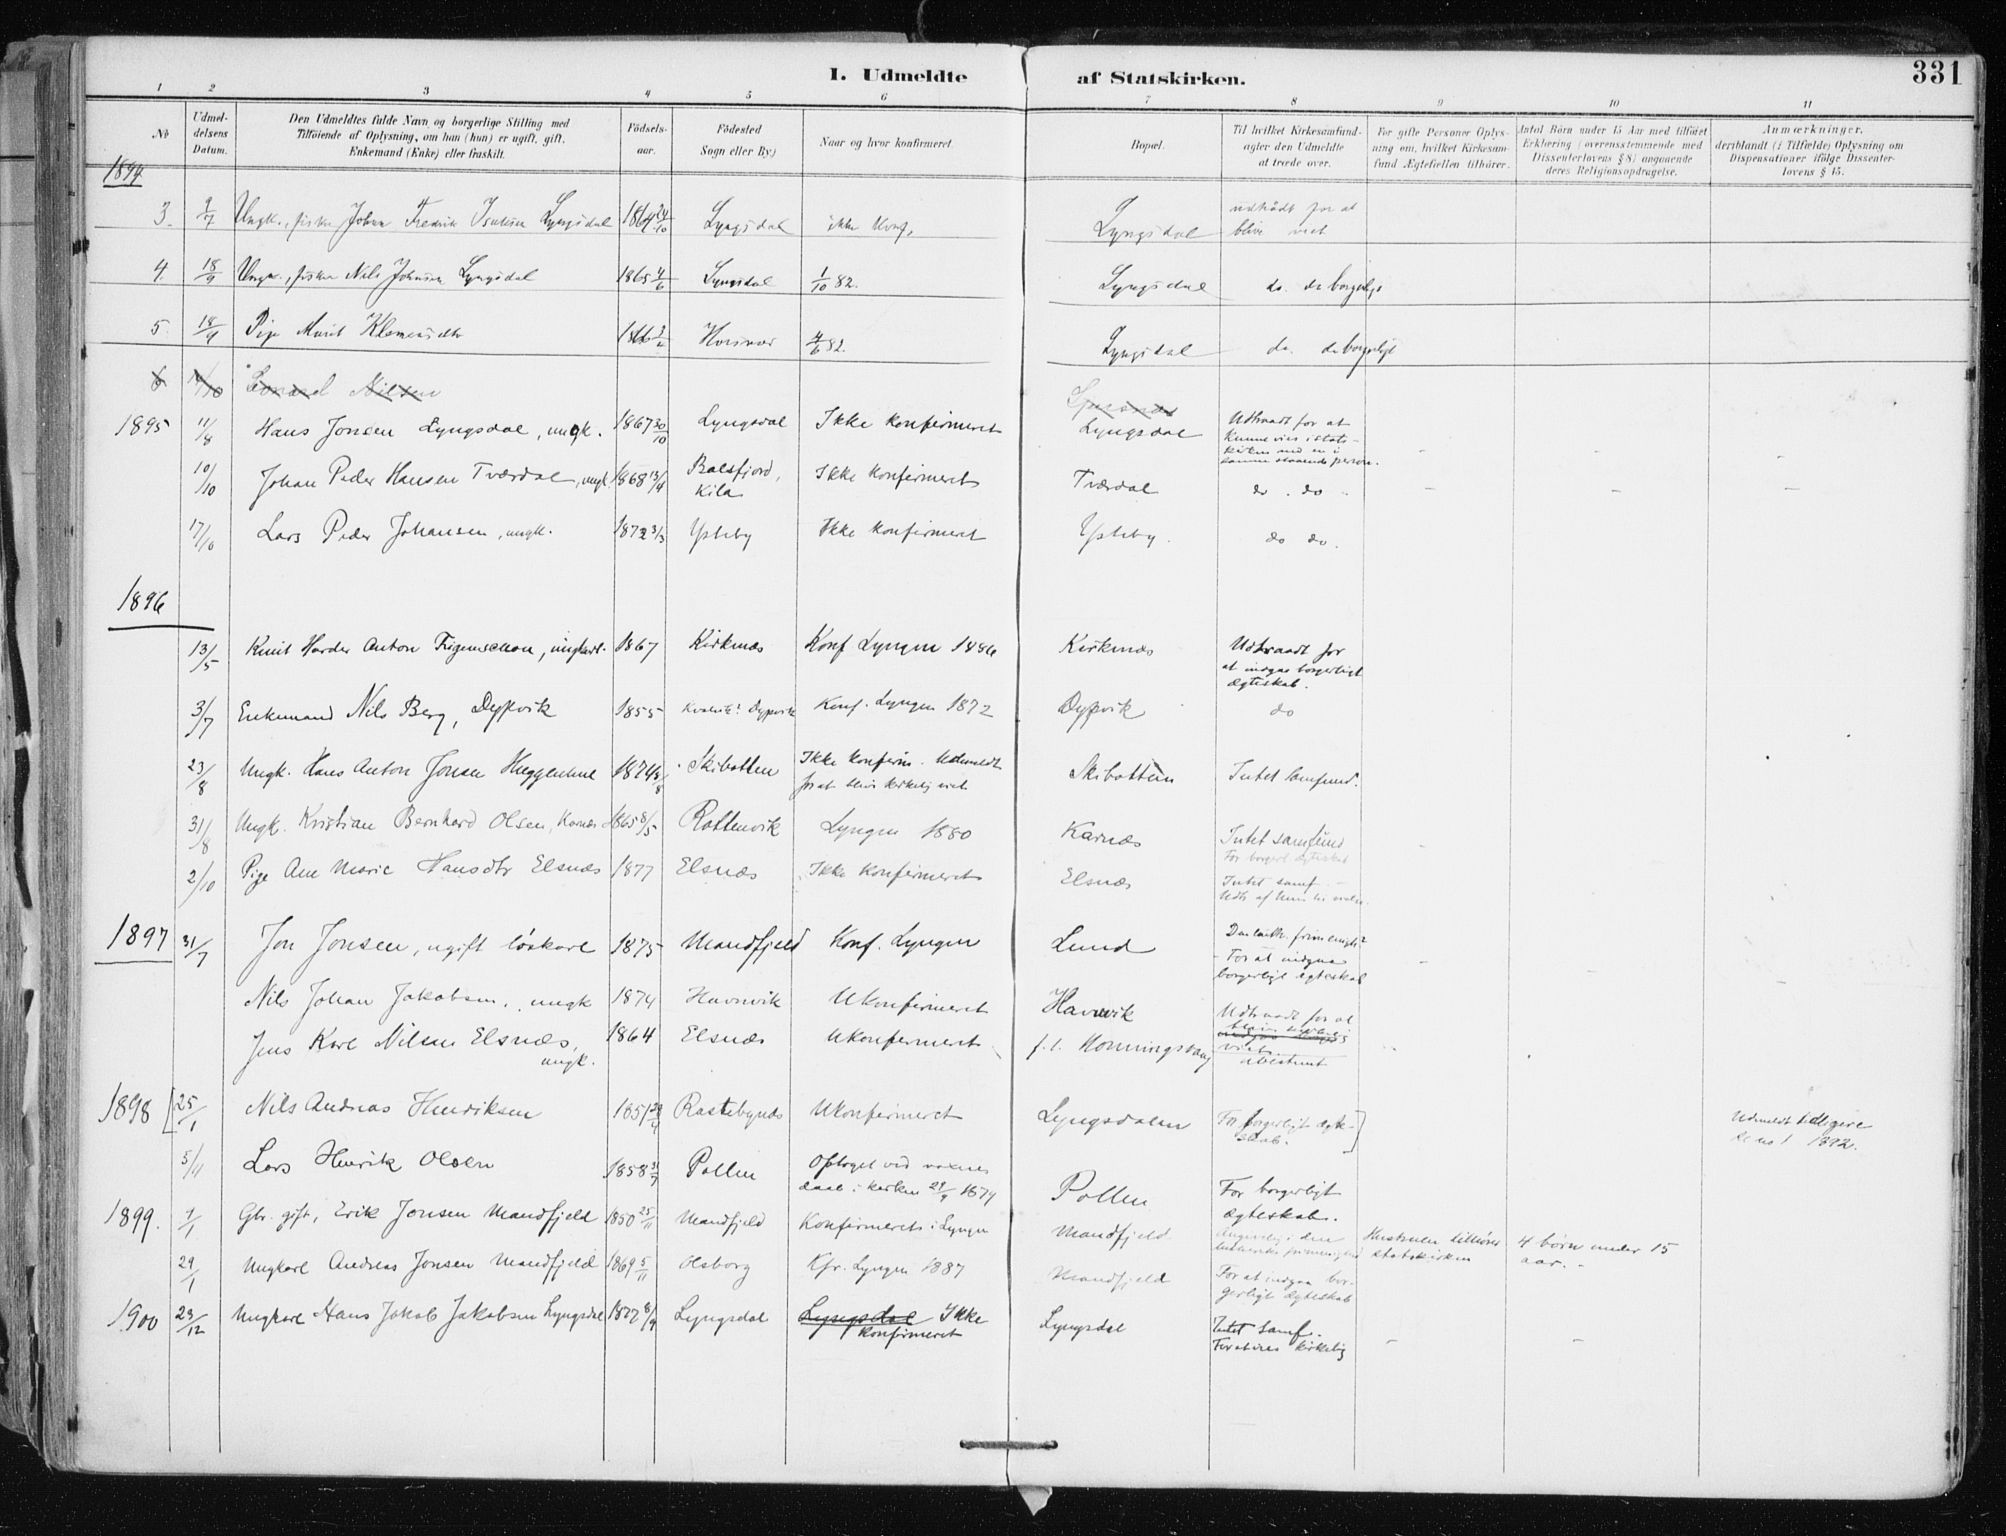 I. Udmeldte af Statskirken. 331
1 2 3 4 5 6 7 8 9 10 11
No
Udmeldelsens Datum.
Den Udmeldtes fulde Navn og borgerlige Stilling med
Tilføiende af Oplysning, om han (hun) er ugift, gift,
Enkemand (Enke) eller fraskilt.
Fødselsaar.
Fødested
Sogn eller By.)
Naar og hvor konfirmeret.
Bopæl.
Til hvilket Kirkesamfund
agter den Udmeldte
at træde over.
For gifte Personer Oplysning om, hvilket Kirkesamfund Ægtefællen tilhører.
Antal Børn under 15 Aar med tilføiet
Erklæring (overensstemmende med
Dissenterlovens § 8) angaaende
deres Religionsopdragelse.
Anmærkninger,
deriblandt (i Tilfælde) Oplysning om
Dispensationer ifølge Dissenterlovens § 15.
1894
3. 9/7 Ungk., fisker Johan Fredrik Isaksen Lyngsdal 1864 24/10 Lyngsdal ikke konf. Lyngsdal udtrådt for at
blive viet
4. 18/9 Ungk., fisker Nils Johnsen Lyngsdal 1865 4/6 Lyngsdal 1/10 82. Lyngsdal do. do borgerligt
5. 18/9 Pige Marit Klemensdtr 3/2 4/6 82. Lyngsdal do. do borgerligt
6 Nilsen
1895 11/8 Hans Jonsen Lyngsdal, ungk. 1867 30/10 Lyngsdal Ikke konfirmeret Lyngsdal Udtraadt for at
kunne vies i stats-
kirken med en i
samme staaende person. - - -
10/10 Johan Peder Hansen Tværdal, ungk. 1868 13/4 Balsfjord,
Kila Ikke konfirmeret Tværdal do. do - - - -
17/10 Lars Peder Johansen, ungk. 1872 3/3 Ysteby Ikke konfirmeret Ysteby. do do.
1896
13/5 Knut Harder Anton Figenschou, ungkarl. 1867 Kirknæs Konf Lyngen 1886 Kirknæs Udtraadt for
at indgaa borgerligt
ægteskab.
3/7 Enkemand Nils Berg, Dypvik 1855 Dypvik Konf. Lyngen 1872 Dypvik do
23/8 Ungk. Hans Anton Jonsen 1874 Skibotten Ikke konfirm. Udmeldt
for at blive kirkelig viet Skibotten Intet Samfund.
31/8 Ungk. Kristian Bernhard Olsen, Karnæs 1865 8/5 Rottenvik Lyngen 1880 Karnæs Intet samfund
For borgerl ægteskab
2/10 Pige Ane Marie Hansdtr Elsnæs 1877 Elsnæs Ikke konfirmeret Elsnæs Intet samf. -
1897 31/7 Jon Jonsen, ugift løskarl 1875 Mandfjeld Konf. Lyngen Lund Den luth. frimenigh?
- For at indgaa
borgerligt ægteskab
Nils Johan Jakobsen, ungk 1874 Havnvik Ukonfirmeret Havnvik Udtraadt for at
blive kirkelig
viet
Jens Karl Nilsen Elsnæs,
ungk. 1864 Elsnæs Ukonfirmeret f. t. Honningsvaag ubestemt
1898 25/1 Nils Andreas Henriksen 1851 Rastebynæs Ukonfirmeret Lyngsdalen For borgerligt ægte-
skab. Udmeldt tidligere
se no 1 1892.
5/11 Lars Henrik Olsen 1858 Pollen Optaget ved voxen
daab i kirken 29/9 1879 Pollen For borgerligt
ægteskab.
1899. 1/1 Gbr. gift, Erik Jonsen Mandfjeld 1850 25/11 Mandfjeld Konfirmeret i Lyngen Mandfjeld Angivelig i den
lutherske frimenighed Hustruen tilhører
statskirken 4 børn under 15
aar. -
29/1 Ungkarl Andreas Jonsen Mandfjeld 1869 5/11 Olsborg Kfr. Lyngen 1887 Mandfjeld For at indgaa bor-
gerligt ægteskab
1900 29/12 Ungkarl Hans Jakob Jakobsen Lyngsdal 1877 8/9 Lyngsdal Lyngsdal Ikke
konfirmeret Lyngsdal Intet samf.
For at vies kirkelig - -